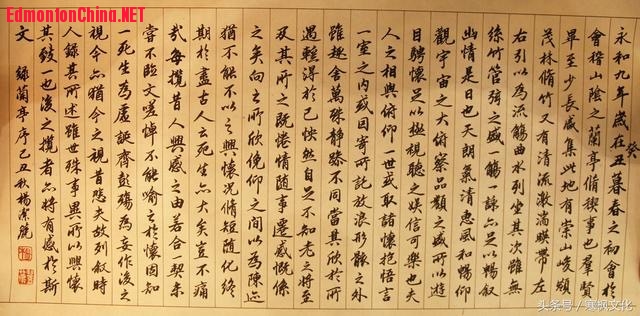 EdmontonChina.NET
癸
永和九年歲在丑暮春之初會於
會稽山陰之蘭亭脩禊事也群賢
畢至少長咸集此地有崇山峻領
茂林脩竹又有清流激湍暎帶左
右引以為流觴曲水列坐其次雖無
絲竹管弦之盛一觴一詠亦足以暢叙
幽情是日也天朗氣清惠風和暢仰
觀宇宙之大俯察品類之盛所以遊
目騁懷足以極視聽之娛信可樂也夫
人之相與俯仰一世或取諸懷抱悟言
一室之內或因寄所託放浪形骸之外
雖趣舍萬殊靜躁不同當其欣於所
遇蹔得於己怏然自足不知老之將至
及其所之既惓情隨事遷感慨係
之矣向之所欣俛仰之間以為陳迹
猶不能不以之興懷況脩短隨化終
期於盡古人云死生亦大矣豈不痛
哉每攬昔人興感之由若合一契未
嘗不臨文嗟悼不能喻之於懷固知
一死生為虛誕齊彭殤為妄作後之
視今亦猶今之視昔悲夫故列叙時
人錄其所述雖世殊事異所以興懷
其致一也後之攬者亦將有感於斯
文 錄蘭亭序己丑秋楊
头条号/寒枫文化